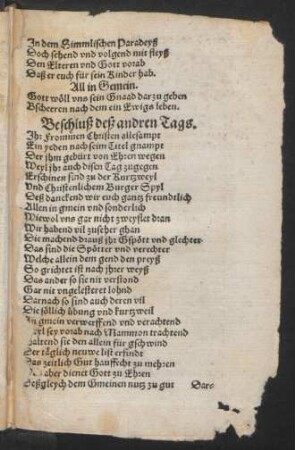 In dem Himmlischen Paradeyß
Doch sehend vnd volgend mit fleyß
Den Elteren vnd Gott vorab
Daß er euch für sein Kinder hab.
All in Gemein.
Gott wöll vns sein Gnaad darzu geben
Bscheeren nach dem ein Ewigs leben.
Beschluß deß andren Tags.
Ihr Frommen Christen allesampt
Ein yeden nach seim Titel gnampt
Der ihm gebürt von Ehren wegen
Weyl jhr auch disen Tag zugegen
Erschinen sind zu der Kurtzweyl
Vnd Christenlichem Burger Spyl
Deß danckend wir euch gantz freundtlich
Allen in gmein vnd sonderlich
Wiewol vns gar nicht zweyflet dran
Wir habend vil zuseher ghan
Die machend drauß jhr Gspött vnd glechter
Das sind die Spötter vnd verechter
Welche allein dem gend den preyß
So grichtet ist nach jhrer weyß
Das ander so sie nit verstond
Gar nit vngelesteret lohnd
Darnach so sind auch deren vil
Die söllich übung vnd kurtzweil
In gmein verwerffend vnd verachtend
sey vorab nach Mammon trachtend
haltend sie den allein für gschwind
Der täglich neuwe list erfindt
Das zeitlich Gut hauffecht zu mehren
aber dienet Gott zu Ehren
Deßgleych dem Gmeinen nutz zu gut
Dar